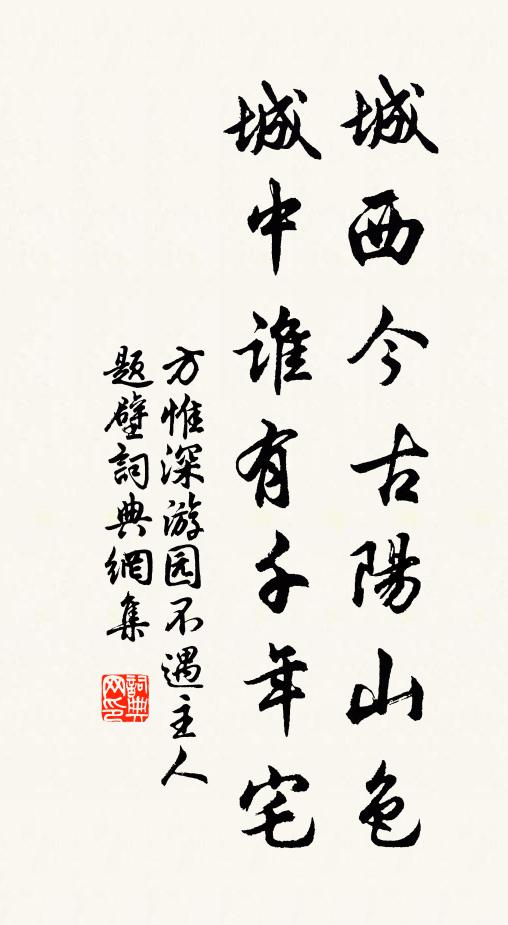 城西今古陽山色
城中誰有千年宅
方惟深游园不遇主人
題壁詞典網集
詞典
网印